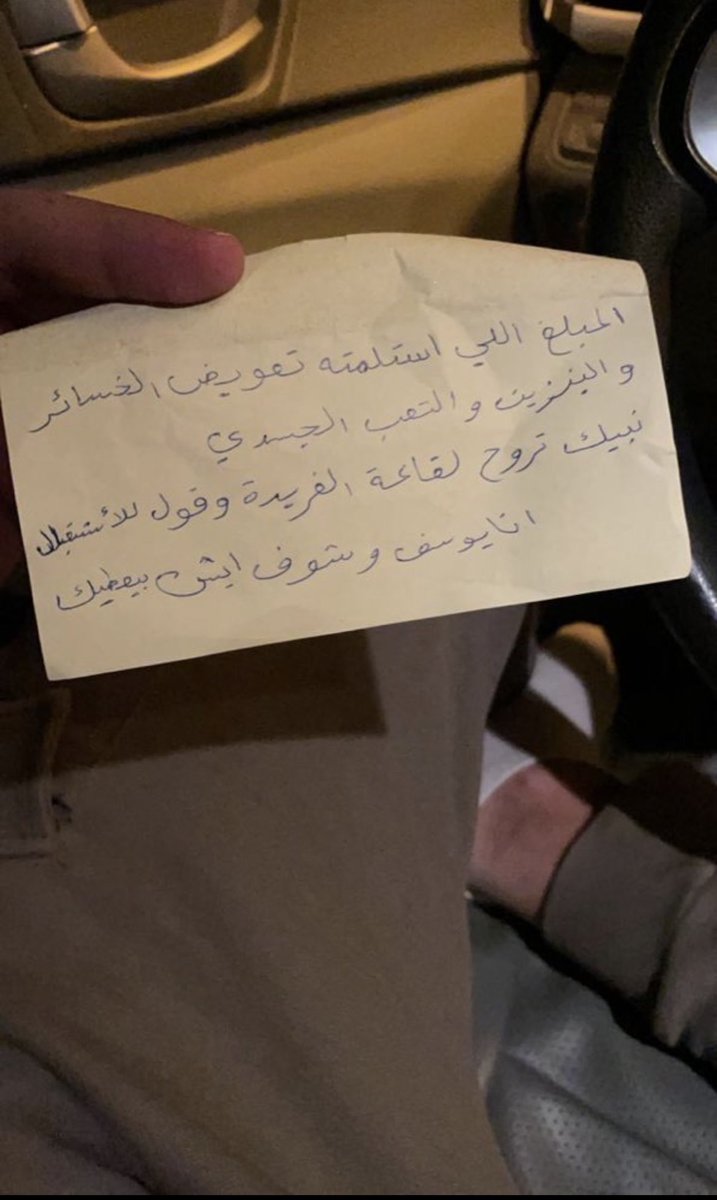 المبلغ اللي استلمته تعويض الخسائر
والبنزين والتعب الجسدي
نبيك تروح لقاعة الفريدة وقول للأستقبال
انا يوسف وشوف ايش بيعطيك